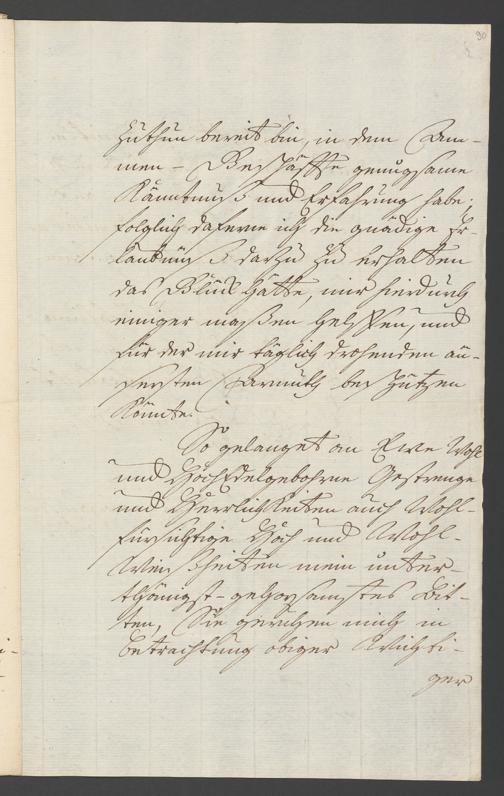 90
zuthun bereit bin, in dem Am-
men-Geschäffte genugsame
Känntnuß und Erfahrung habe;
folglich daferne ich die gnädige Er-
laubnuß darzu zu erhalten
das Glück hätte, mir hierdurch
einiger maßen helffen, und
für der mir täglich drohenden äu-
sersten Armuth beschützen
könnte.
So gelanget an Ewe Wohl
und HochEdelgebohrne Gestrenge
und Herrlichkeiten auch Wohl-
fürsichtige Hoch und Wohl-
Weißheiten mein unter-
thänigst-gehorsamstes Bit-
ten, Sie geruhen mich in
Betrachtung obiger Wichti-
ger